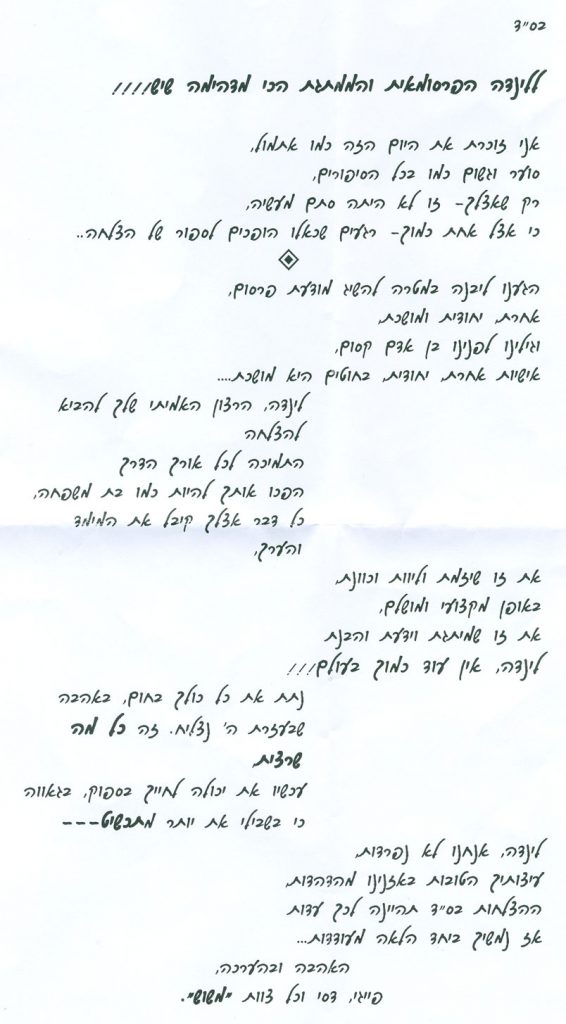 בס"ד
ללינדה הפרסומאית והממתגת הכי מדהימה שיש!!!!
אני זוכרת את היום הזה כמו אתמול,
סוער וגשום כמו בכל הסיפורים,
רק שאצלך- זו לא היתה סתם מעשיה,
כי אצל אחת כמוך- רגעים שכאלו הופכים לספור של הצלחה..
הגענו ליבנה במטרה להשיג מודעת פרסום,
אחרת, יחודית ומושכת,
וגילינו לפנינו בן אדם קסום,
אישיות אחרת, יחודית, בחוטים היא מושכת....
לינדה, הרצון האמיתי שלך להביא
להצלחה
התמיכה לכל אורך הדרך
הפכו אותך להיות כמו בת משפחה,
כל דבר אצלך קיבל את המימד
והערך,
את זו שיזמת וליוות וכוונת,
באופן מקצועי ומושלם,
את זו שמיתגת וידעת והבנת
לינדה, אין עוד כמוך בעולם!!!
נתת את כל כולך בחום, באהבה
שבעזרת ה' נצליח. זה כל מה
שרצית,
עכשיו את יכולה לחייך בספוק, בגאווה
כי בשבילי את יותר מתכשיט---
לינדה, אנחנו לא נפרדות,
עיצותיך הטובות באזנינו מהדהדות,
ההצלחות בס"ד תהיינה לכך עדות
אז נמשיך ביחד הלאה מעודדות...
האהבה ובהערכה,
פייגי, דסי וכל צוות "משוש".